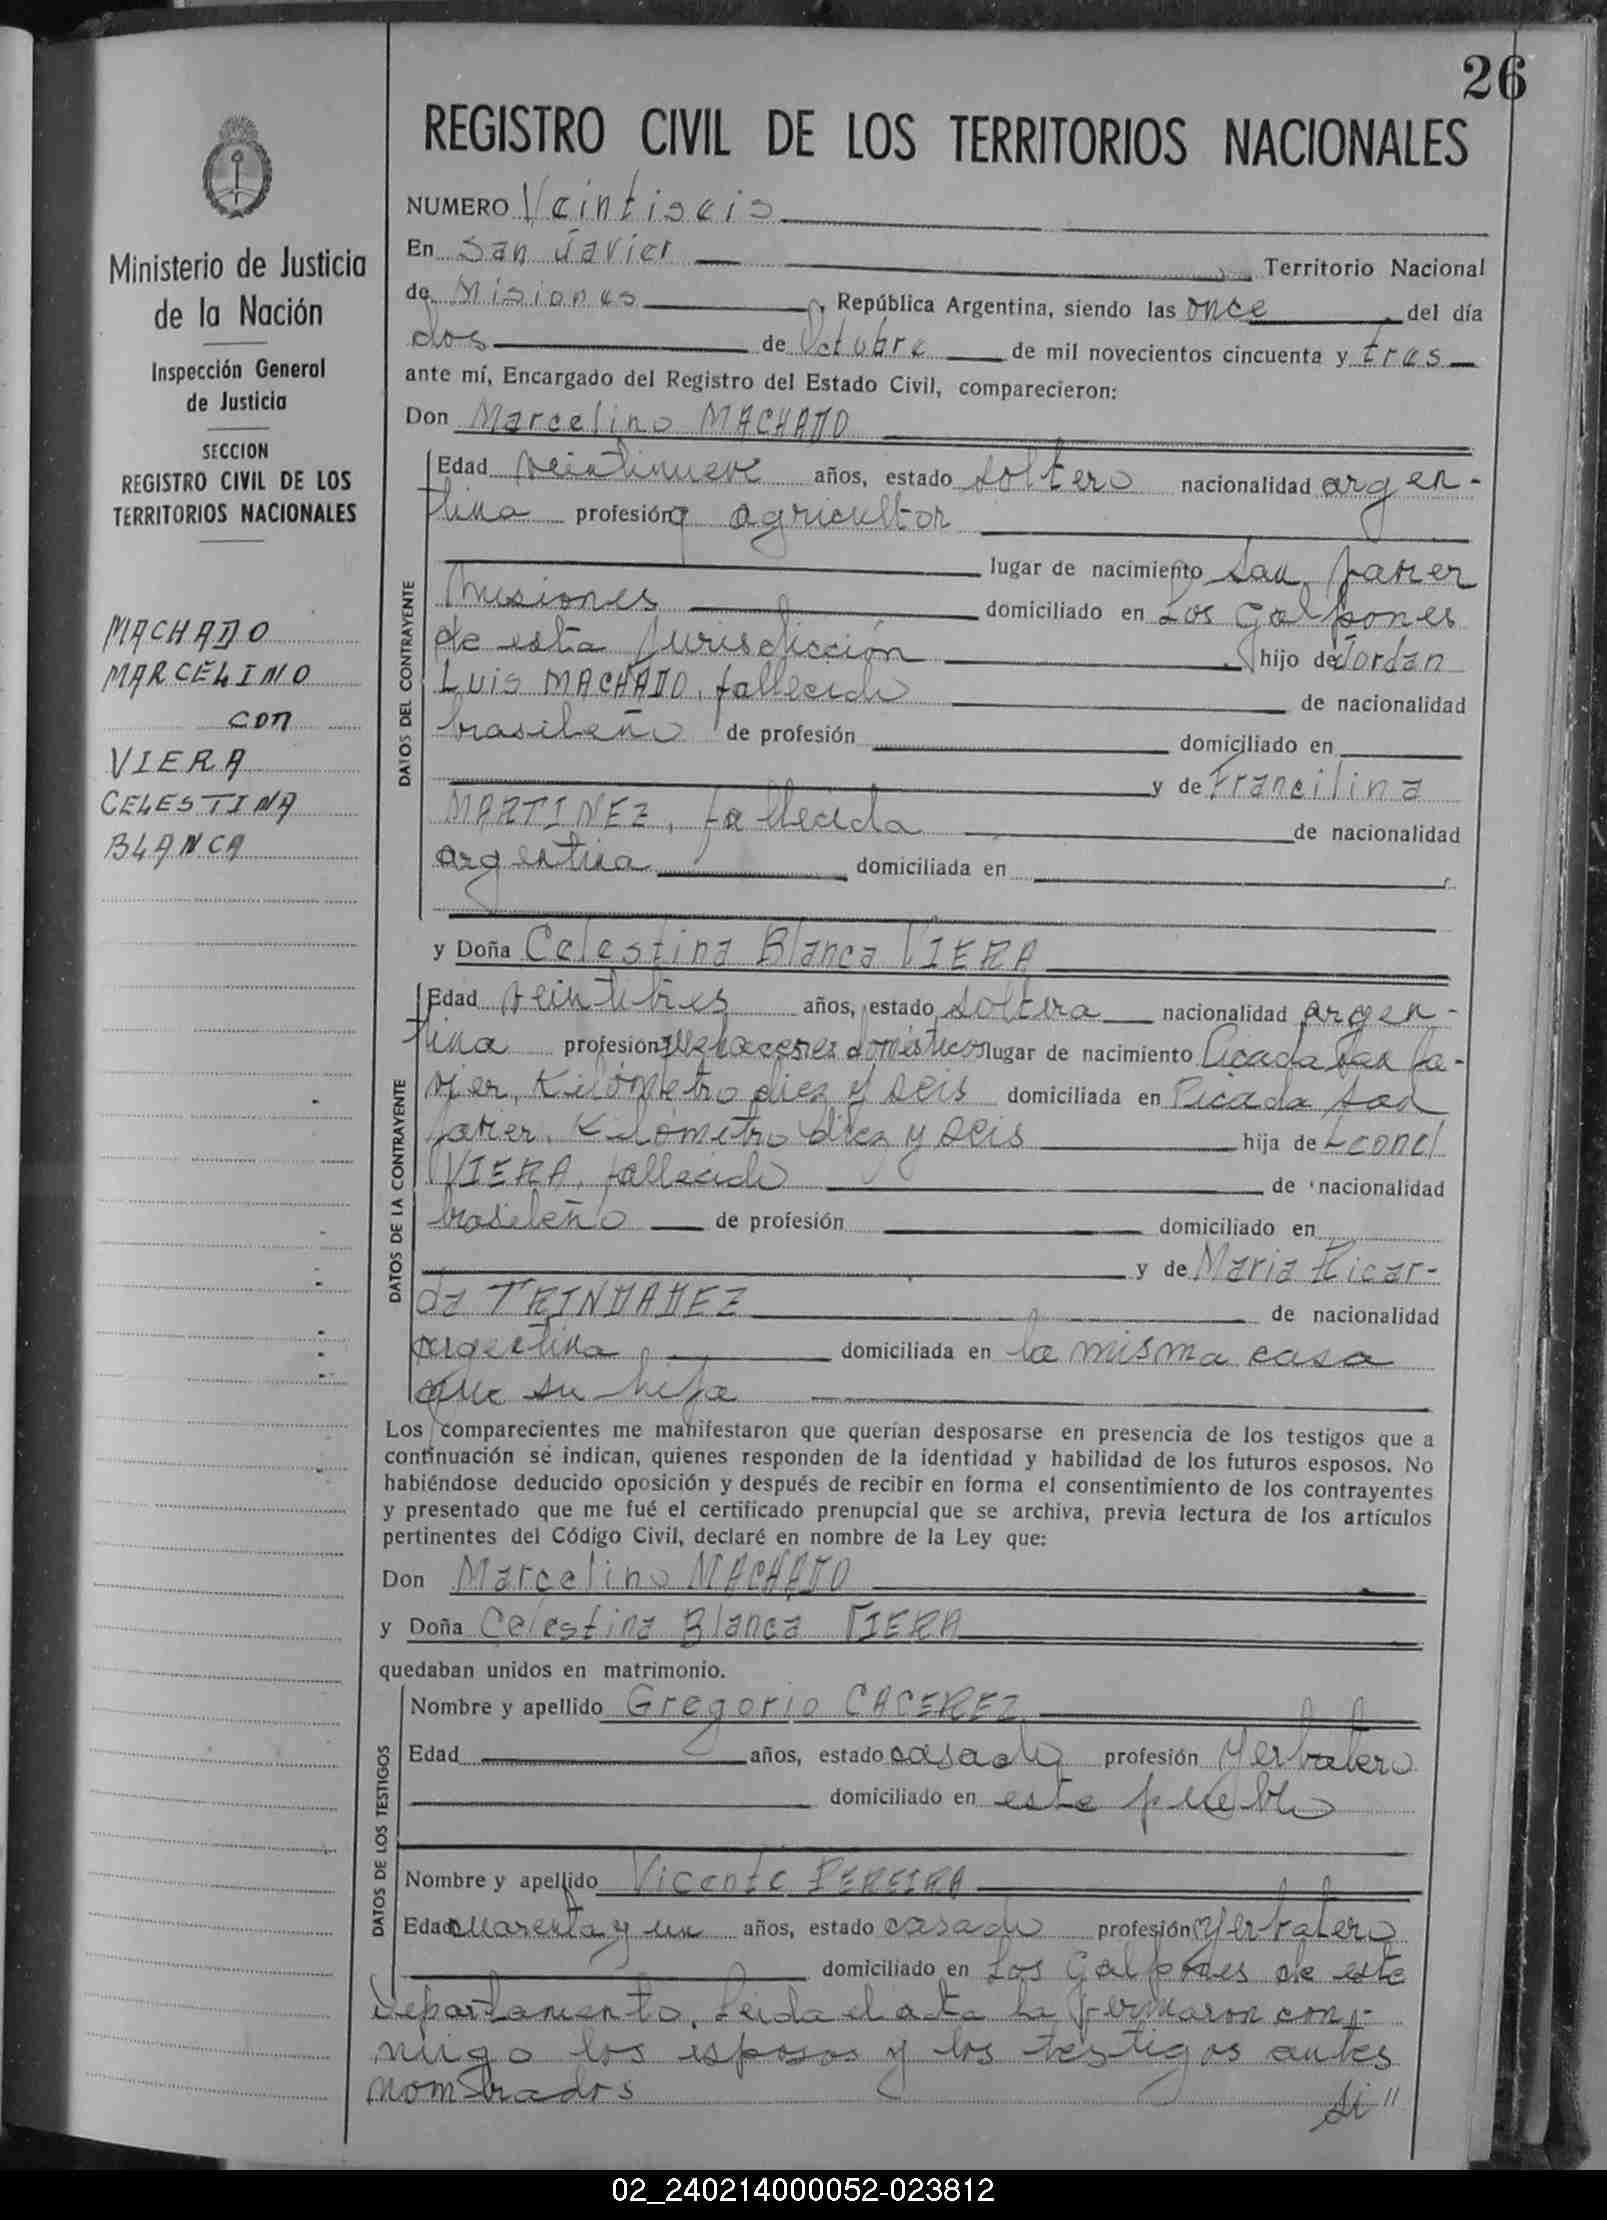 26
REGISTRO CIVIL DE LOS TERRITORIOS NACIONALES
Ministerio de Justicia
de la Nación
Inspección General
de Justicia
SECCION
REGISTRO CIVIL DE LOS
TERRITORIOS NACIONALES
MACHADO
MARCELINO
con
VIERA
CELESTINA
BLANCA
NUMERO Veintiseis
En San Javier Territorio Nacional
de Misiones, República Argentina, siendo las once del día
dos de Octubre de mil novecientos cincuenta y tres
ante mí, Encargado del Registro del Estado Civil, comparecieron:
Don Marcelino MACHADO
DATOS DEL CONTRAYENTE
Edad veintinueve años, estado soltero nacionalidad argen-
tina profesión agricultor
lugar de nacimiento San Javier
Misiones domiciliado en Los Galpones
de esta Jurisdicción, hijo de Jordan
Luis MACHADO, fallecido de nacionalidad
brasileño de profesión domiciliado en
y de Francilina
MARTINEZ, fallecida de nacionalidad
argentina domiciliada en
y Doña Celestina Blanca VIERA
DATOS DE LA CONTRAYENTE
Edad veintitres años, estado soltera nacionalidad argen-
tina profesión quehaceres domésticos lugar de nacimiento Picada San Ja-
vier, Kilómetro diez y seis domiciliada en Picada San
Javier, Kilometro diez y seis hija de Leonel
VIERA, fallecido de nacionalidad
brasileño de profesión domiciliado en
y de Maria Ricar-
da TRINDADEZ de nacionalidad
argentina domiciliada en la misma casa
que su hija
Los comparecientes me manifestaron que querían desposarse en presencia de los testigos que a
continuación se indican, quienes responden de la identidad y habilidad de los futuros esposos. No
habiéndose deducido oposición y después de recibir en forma el consentimiento de los contrayentes
y presentado que me fué el certificado prenupcial que se archiva, previa lectura de los artículos
pertinentes del Código Civil, declaré en nombre de la Ley que:
Don Marcelino MACHADO
y Doña Celestina Blanca VIERA
quedaban unidos en matrimonio.
DATOS DE LOS TESTIGOS
Nombre y apellido Gregorio CACEREZ
Edad años, estado casado profesión yerbatero
domiciliado en este pueblo
Nombre y apellido Vicente PEREIRA
Edad cuarenta y un años, estado casado profesión yerbatero
domiciliado en Los Galpones de este
departamento. Leida el acta la firmaron con-
migo los esposos y los testigos antes
nombrados
si"
02_240214000052-023812